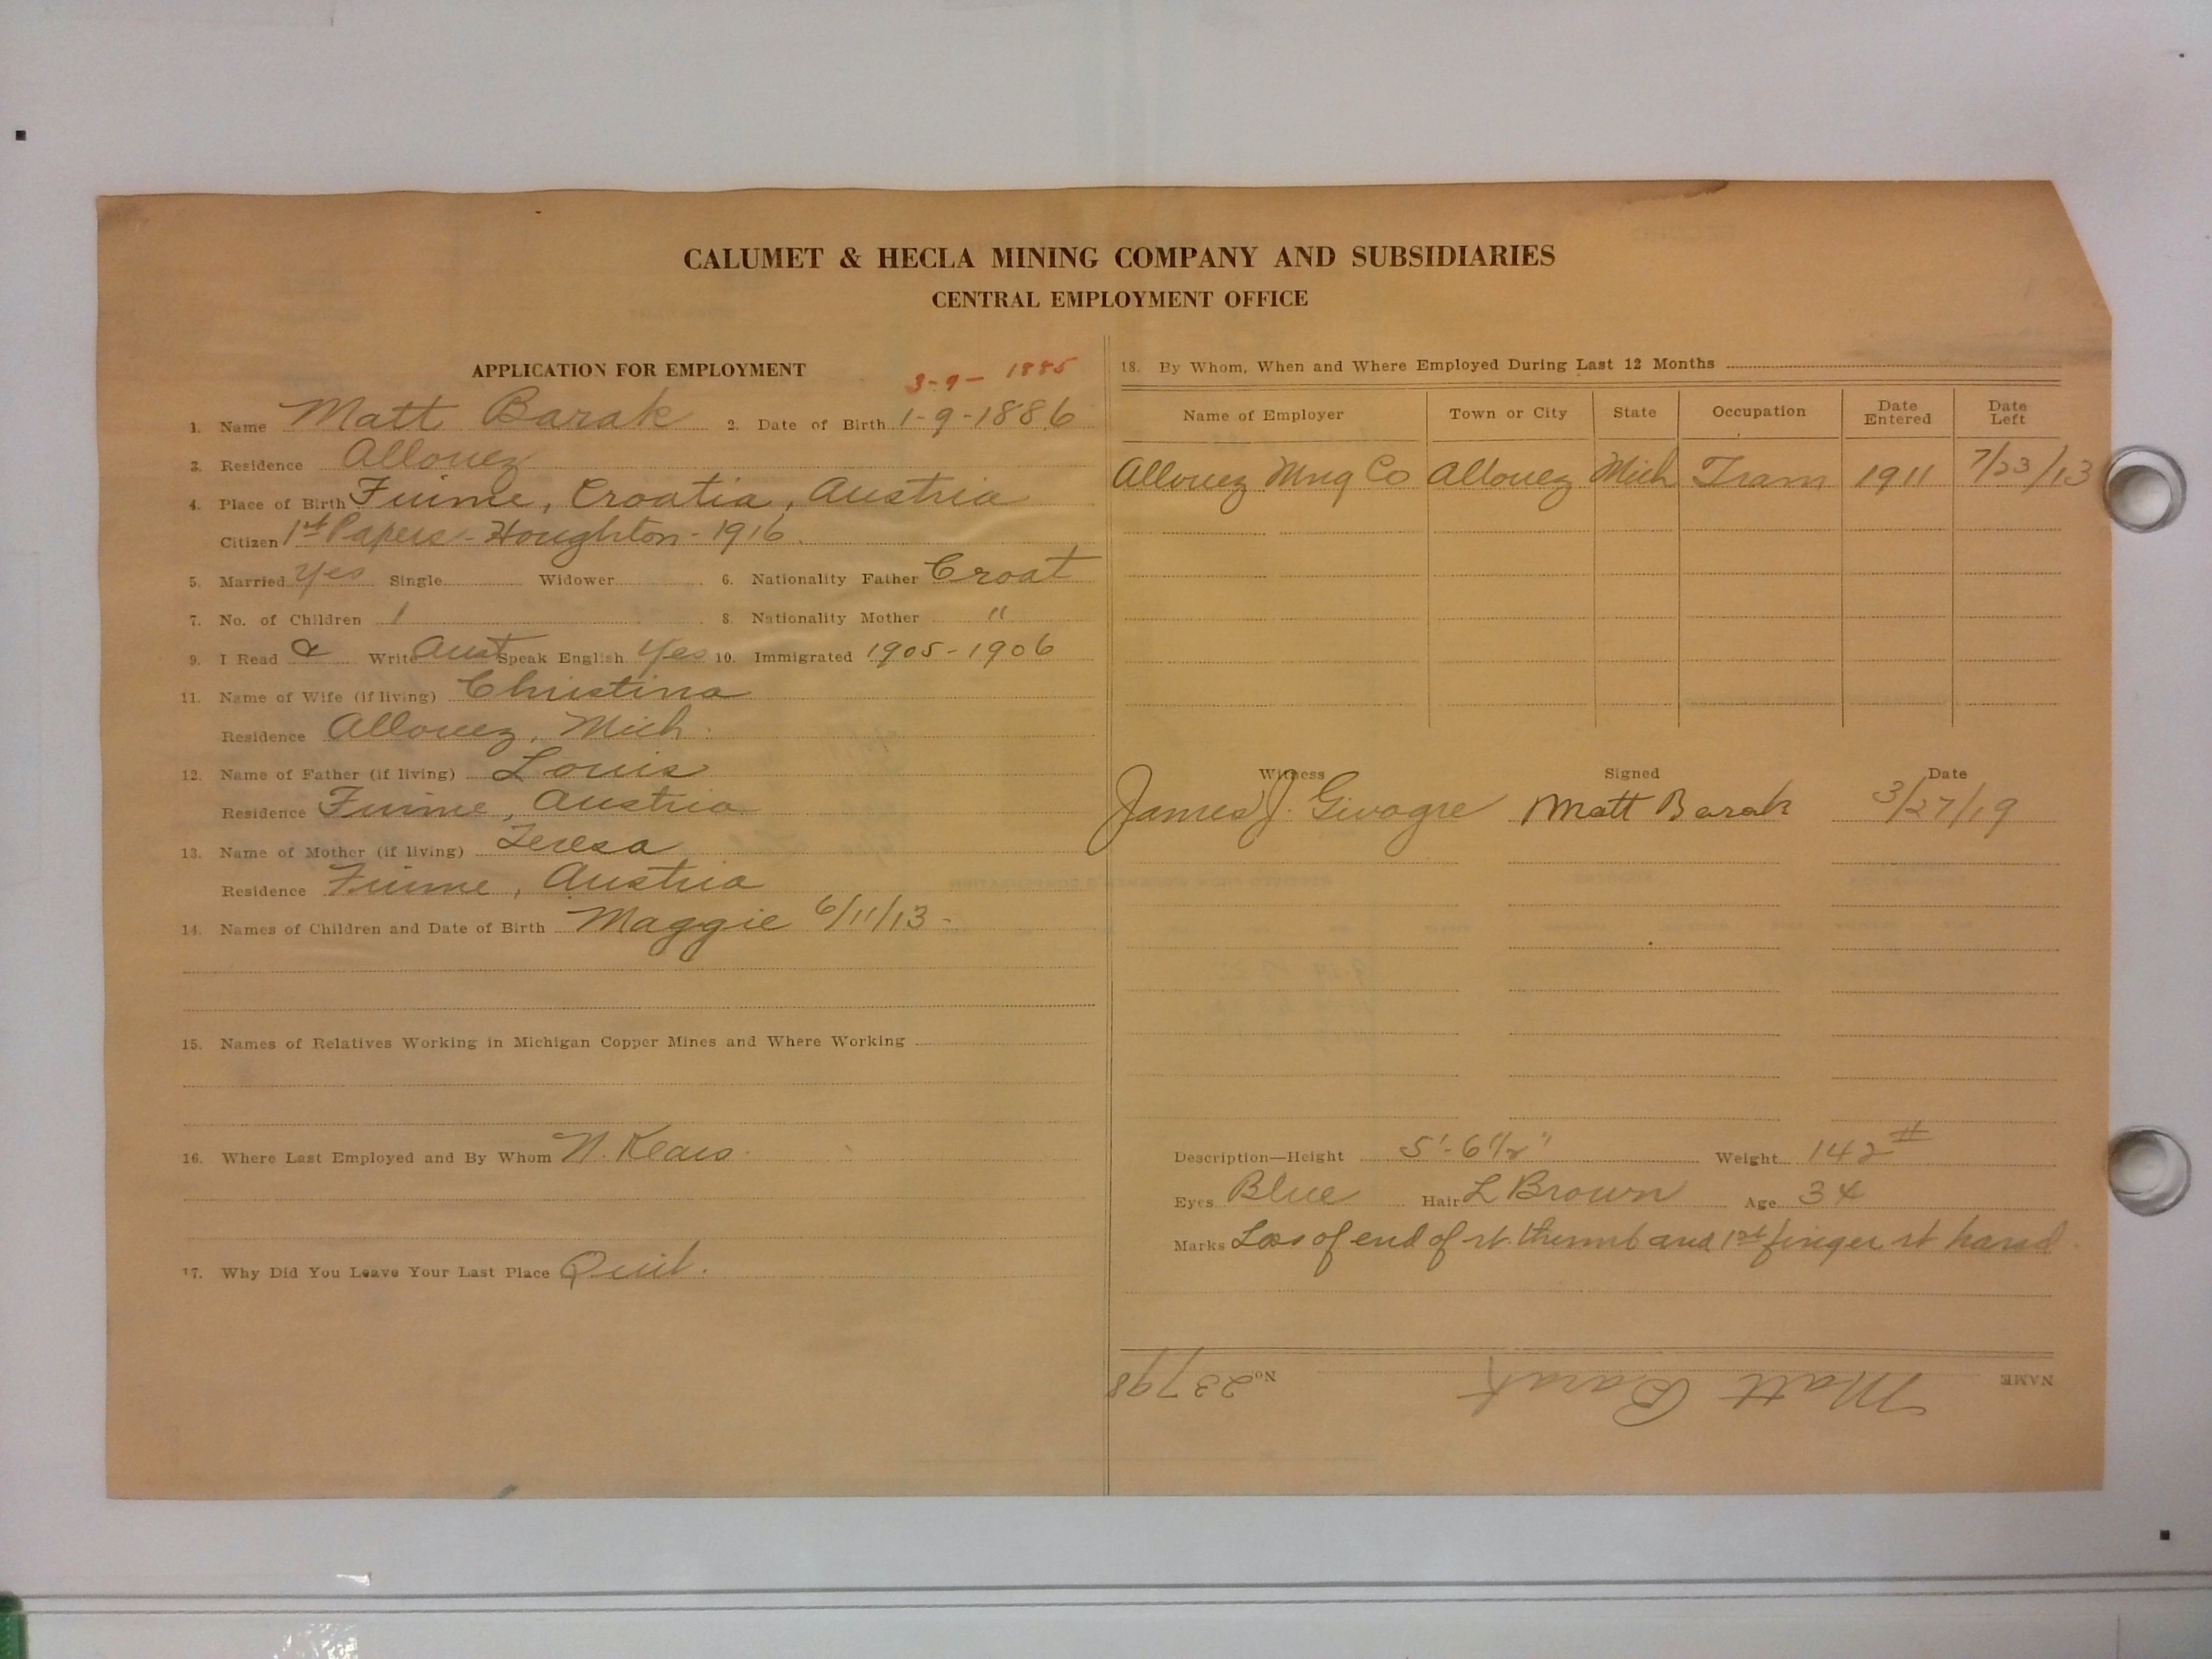 CALUMET & HECLA MINING COMPANY AND SUBSIDIARIES
CENTRAL EMPLOYMENT OFFICE
APPLICATION FOR EMPLOYMENT
3-9- 1885
1. Name Matt Barak 2. Date of Birth 1-9-1886
3. Residence Allouez
4. Place of Birth Fuime, Croatia, Austria
Citizen 1st Papers - Houghton - 1916.
5. Married Yes Single Widower 6. Nationality Father Croat
7. No. of Children 1 8. Nationality Mother "
9. I Read & Write Aust Speak English Yes 10. Immigrated 1905-1906
11. Name of Wife (if living) Christina
Residence Allouez, Mich.
12. Name of Father (if living) Louis
Residence Fuime, Austria
13. Name of Mother (if living) Teresa
Residence Fuime, Austria
14. Names of Children and Date of Birth Maggie 6/11/13 -
15. Names of Relatives Working in Michigan Copper Mines and Where Working
16. Where Last Employed and By Whom N. Kears.
17. Why Did You Leave Your Last Place Quit.
18. By Whom, When and Where Employed During Last 12 Months
Name of Employer Town or City State Occupation Date Entered Date Left
Allouez Mng Co Allouez Mich Tram 1911 7/23/13
Witness Signed Date
James J. Matt Barak 3/27/19
Description—Height 5'-6 1/2" Weight 142 #
Eyes Blue Hair L Brown Age 34
Marks Loss of end of rt. thumb and 1st finger rt hand
NAME Matt Barak No 23798